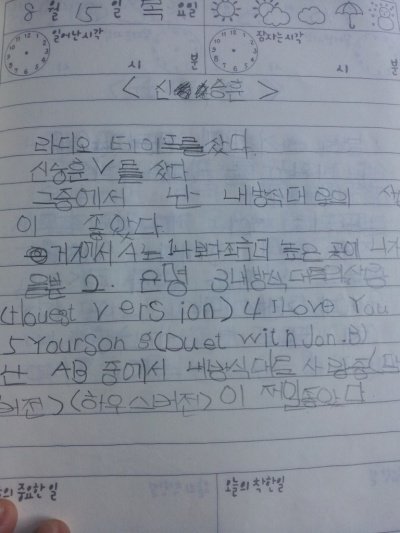 8 월 15 일 목 요일
일어난 시각 잠자는 시각
시 분 시 분
< 신승훈 >
라디오 테이프를 샀다.
신승훈 V를 샀다
그중에서 난 내방식대로의 사
이 좋았다.
거기에서 A는 1나보다조금더 높은 곳에 니가
2. 운명 3내방식대로의사랑
(Houest version) 4 I Love You
5 Your Song (Duet with Jon.B)
난 AB 중에서 내방식대로 사랑중(
버전)(하우스버전)이 제일좋았다.
의 중요한 일 오늘의 착한일